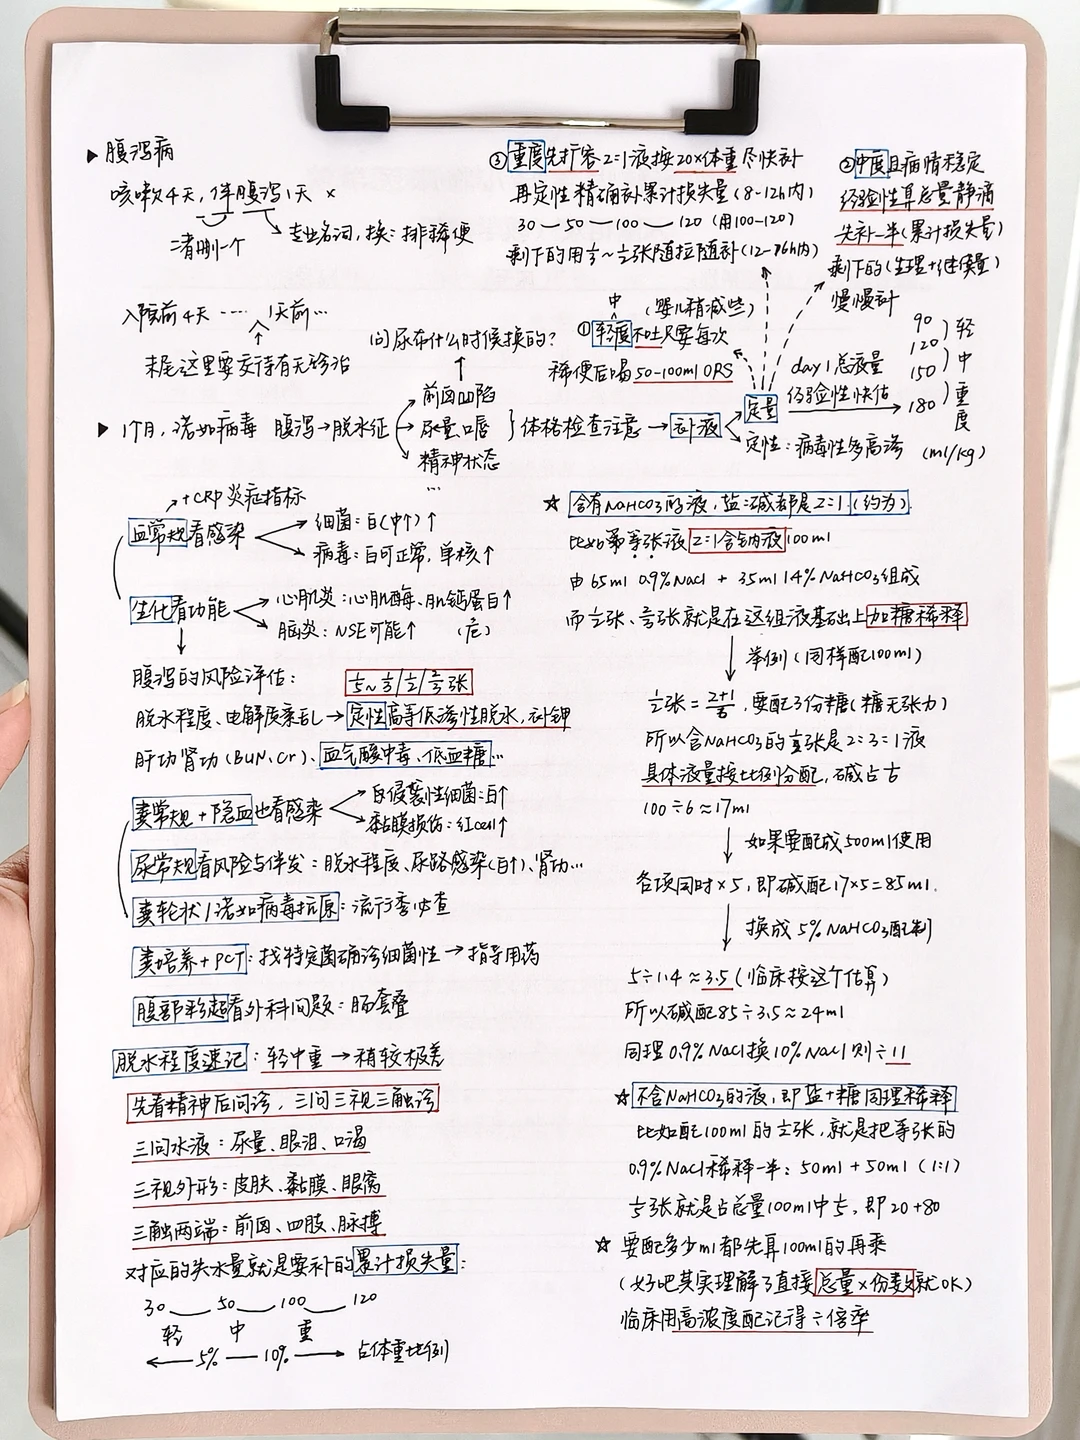 ▶ 腹泻病
咳嗽4天，伴腹泻1天 ×
二者删一个
专业名词，换：排稀便
入院前4天 ···· 1天前···
末尾这里要交待有无诊治
问尿布什么时候换的？
▶ 1个月，诺如病毒 腹泻→脱水征
前囟凹陷
尿量口唇
精神状态
…
}体格检查注意→补液
定量
定性：病毒性多高渗
③重度先扩容2=1液按20×体重尽快补
再定性精确补累计损失量(8-12h内)
30 — 50 — 100 — 120 (用100-120)
剩下的用⅓~½张随拉随补(12-16h内)
②中度且病情稳定
经验性算总量静滴
先补一半(累计损失量)
剩下的(生理+继续量)
慢慢补
中
(婴儿稍减些)
①轻度不吐只要每次
稀便后喝50-100ml ORS
day1总液量
经验性快估
90
120
150
180
轻
中
重度
(ml/kg)
+CRP炎症指标
血常规看感染
细菌：白(中↑)↑
病毒：白可正常，单核↑
生化看功能
心肌炎：心肌酶、肌钙蛋白↑
脑炎：NSE可能↑ (危)
腹泻的风险评估：
⅕~⅓/½/⅔张
脱水程度、电解质紊乱→定性高等低渗性脱水，补钾
肝功肾功(BUN、Cr)、血气酸中毒、低血糖…
粪常规+隐血也看感染
侵袭性细菌：白↑
黏膜损伤：红cell↑
尿常规看风险与伴发：脱水程度、尿路感染(白↑)、肾功…
粪轮状/诺如病毒抗原：流行季必查
粪培养+PCT：找特定菌确诊细菌性→指导用药
腹部彩超看外科问题：肠套叠
脱水程度速记：轻中重→稍较极差
先看精神后问诊，三问三视三触诊
三问水液：尿量、眼泪、口渴
三视外形：皮肤、黏膜、眼窝
三触两端：前囟、四肢、脉搏
对应的失水量就是要补的累计损失量：
30 50 100 120
轻 中 重
← 5% — 10% → 占体重比例
☆ 含有NaHCO3的液，盐：碱都是2=1(约为)
比如等张液2=1含钠液100ml
由65ml 0.9%NaCl + 35ml 1.4%NaHCO3组成
而½张、⅔张就是在这组液基础上加糖稀释
举例(同样配100ml)
½张=2+1/6，要配3份糖(糖无张力)
所以含NaHCO3的½张是2=3=1液
具体液量按比例分配，碱占⅙
100÷6≈17ml
如果要配成500ml使用
各项同时×5，即碱配17×5=85ml.
换成5%NaHCO3配制
5÷1.4≈3.5(临床按这个估算)
所以碱配85÷3.5≈24ml
同理0.9%NaCl换10%NaCl则÷11
☆ 不含NaHCO3的液，即盐+糖同理稀释
比如配100ml的½张，就是把等张的
0.9%NaCl稀释一半：50ml+50ml (1:1)
⅕张就是占总量100ml中⅕，即20+80
☆ 要配多少ml都先算100ml的再乘
(好吧其实理解了直接总量×份数就OK)
临床用高浓度配记得÷倍率